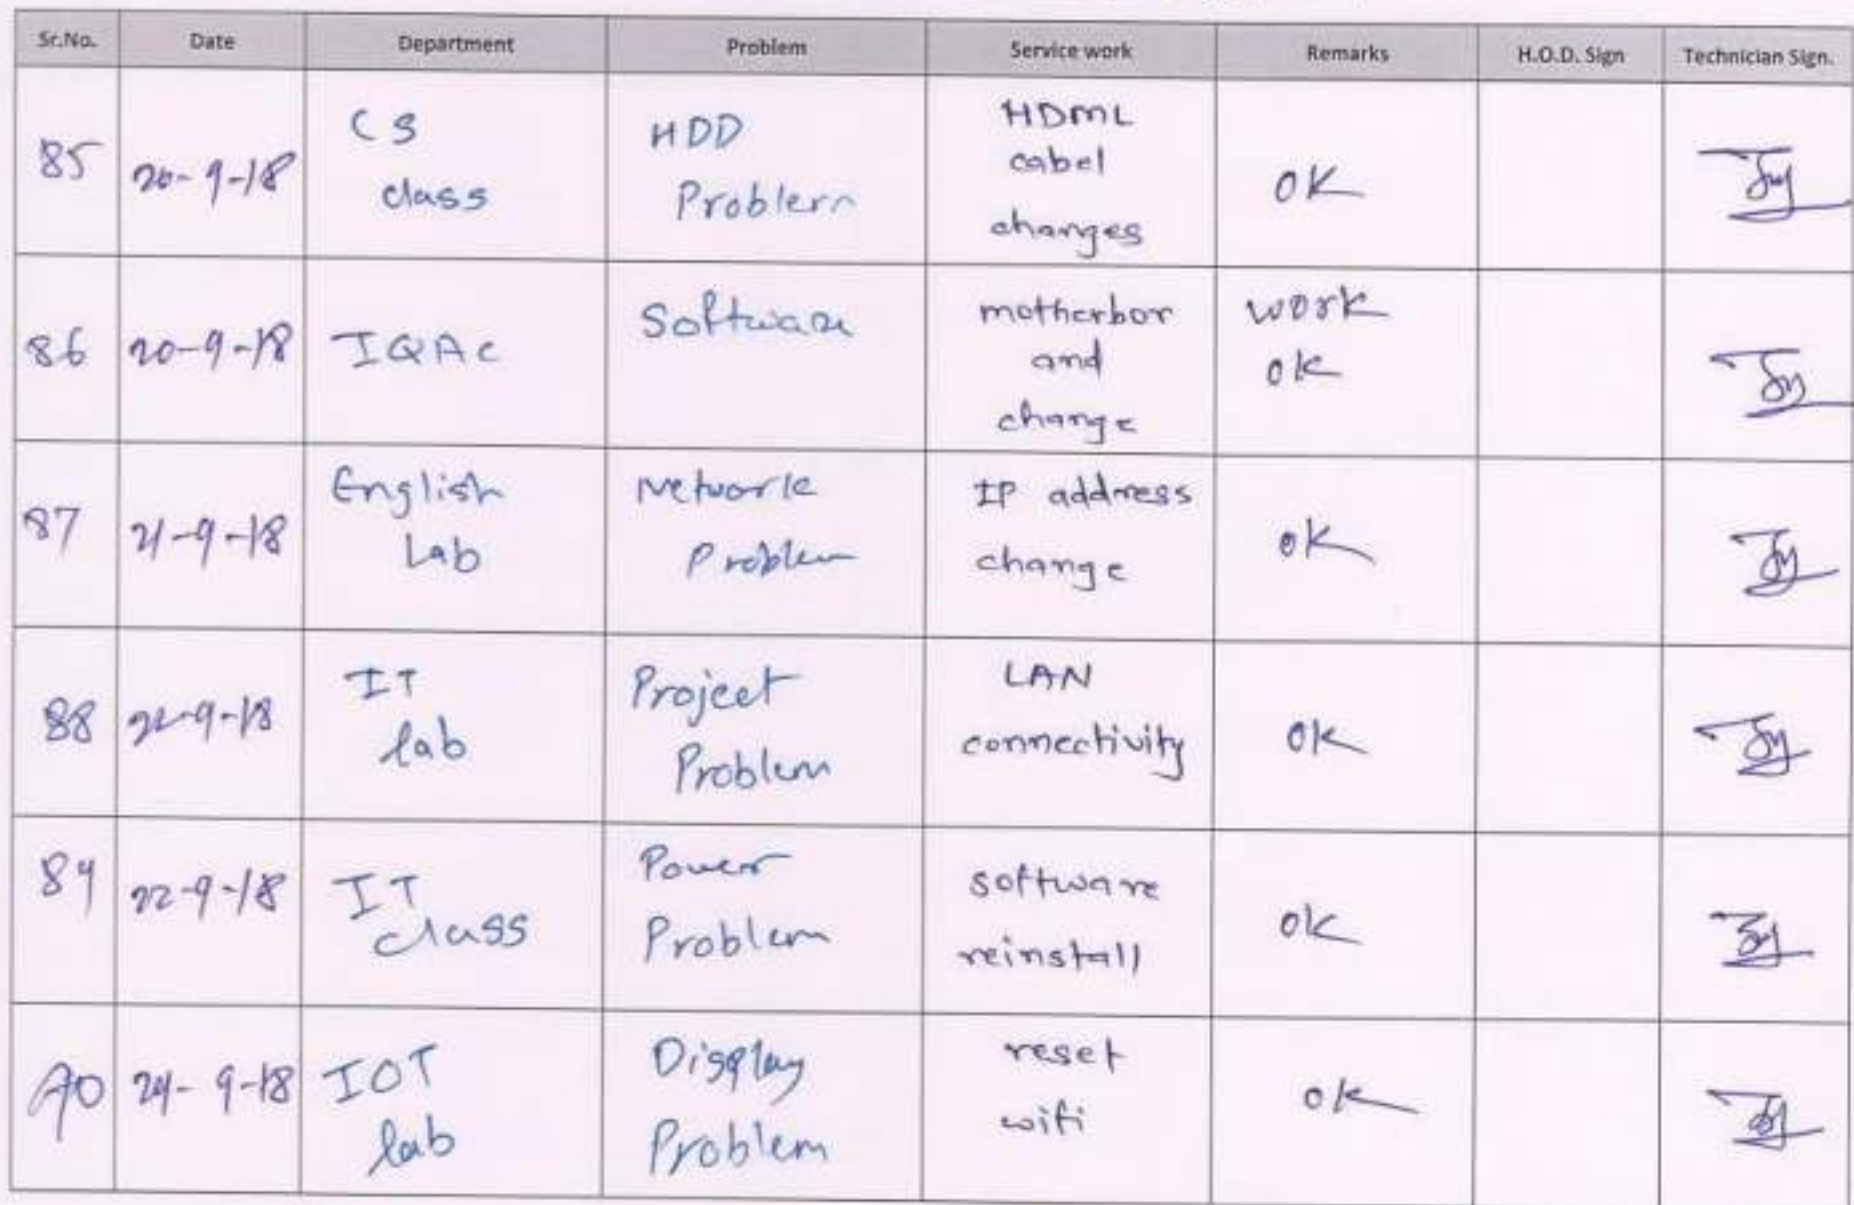 Sr.No. Date Department Problem Service work Remarks H.O.D. Sign Technician Sign.
85 20-9-18 CS class HDD Problem HDML cabel changes OK
86 20-9-18 IQAC Software motherbor and change work ok
87 21-9-18 English Lab Network Problem IP address change OK
88 22-9-18 IT lab Project Problem LAN connectivity OK
89 22-9-18 IT class Power Problem software reinstall OK
90 24-9-18 IOT lab Display Problem reset wifi OK